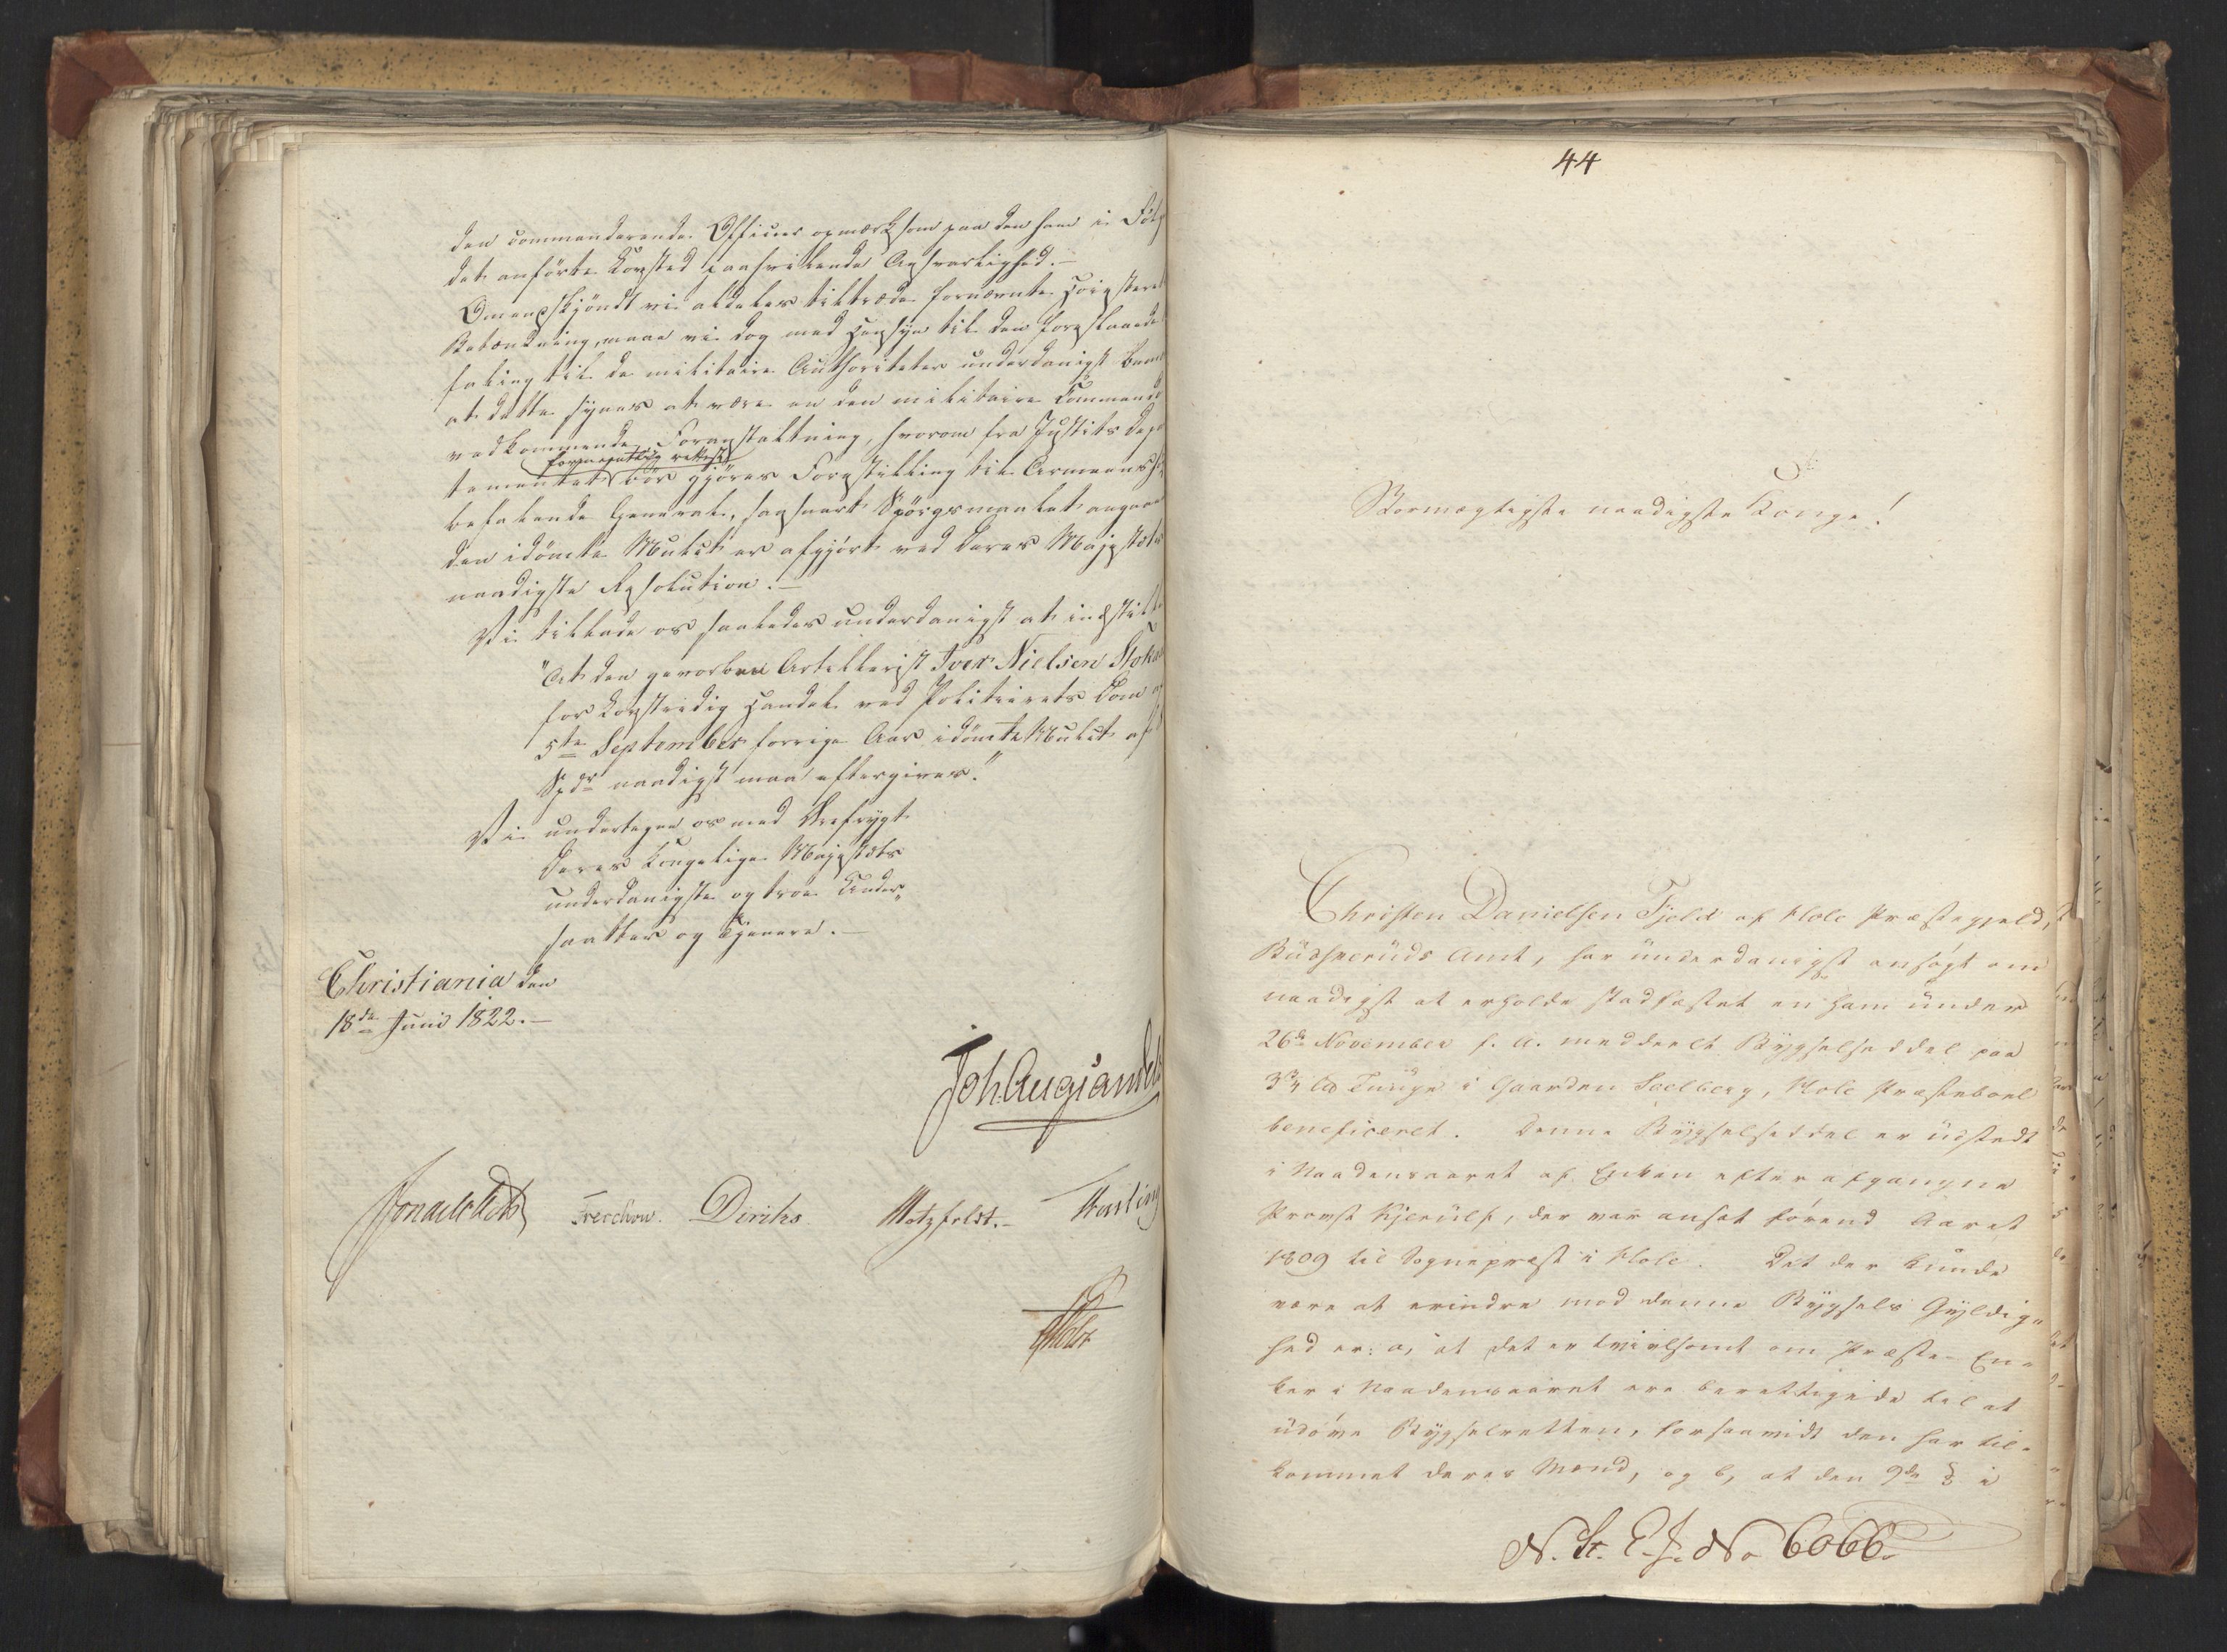 den commanderende Officier opmærksom paa den ham i
det anførte Kongsted paahvilende Ansvarlighed.—
Omendskjøndt vi aldeles tiltræde fornævnte
Betænkning, maae vi dog med Hensyn til den foreslaaede
til de militaire Authoriteter underdanigst
at dette synes at være en den militaire Commando
vedkommende Foranstaltning, hvorom fra Justits
formeentlig rettest
bør gjøres Forestilling til Armeens
befalende General, saasnart Spørgsmaalet angaaende
den idømte Mulct er afgjort ved Deres Majestæts
naadigste Resolution.—
Vi tillade os saaledes underdanigst at indstille
"At den gevorbne Artillerist Iver Nielsen
for Handel ved Politierets Dom
5te September forrige Aar idømte Mulct af
Spdr naadigst maa eftergives."
Vi undertegne os med Ærefrygt
Deres Kongelige Majestæts
underdanigste og troe Under-
saatter og Tjenere.—
Christiania den
18de Juni 1822.—
Joh. Aug. Sandels
Treschow. Diriks. Motzfeldt.—
44
Stormægtigste naadigste Konge!
Christen Danielsen Fjeld af Hole Præstegjeld,
Budskeruds Amt, har underdanigst ansøgt om
naadigst at erholde stadfæstet en ham under
26de November f. A. meddeelt Bygselseddel paa
3¾ Lb Tunge i Gaarden Soelberg, Hole Præsteboel
beneficeret. Denne Bygselseddel er udstedt
i Naadensaaret af Enken efter afgangne
Provst Kjerulf, der var ansat førend Aaret
1809 til Sognepræst i Hole. Det der kunde
være at erindre mod denne Bygsels Gyldig-
hed er: a, at det er tvivlsomt om Præste-En-
ker i Naadensaaret ere berettigede til at
udøve Bygselretten, forsaavidt den har til-
kommet deres Mænd, og b, at den 9de § i
N. St. E. J. No 6066.